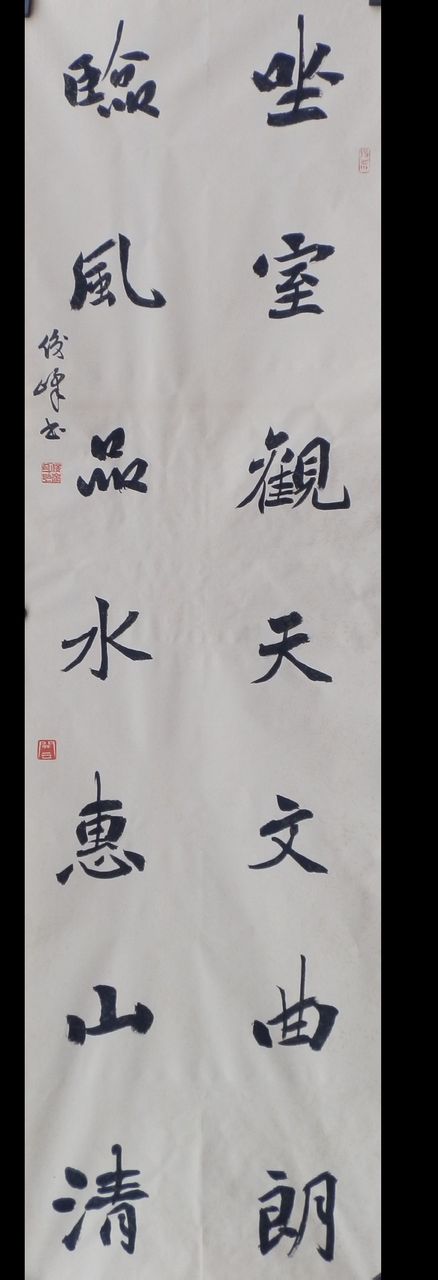 坐室觀天文曲朗
臨風品水惠山清
俊峰书